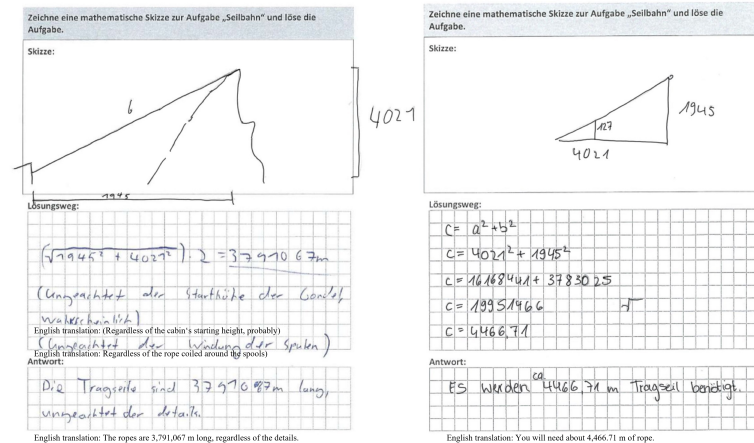 Zeichne eine mathematische Skizze zur Aufgabe „Seilbahn“ und löse die
Aufgabe.
Skizze:
6
4021
1945
Lösungsweg:
(√1945² + 4021²) · 2 = 3791067m
(Ungeachtet der Starthöhe der Gondel,
wahrscheinlich)
English translation: (Regardless of the cabin's starting height, probably)
(Ungeachtet der Windung der Spulen)
English translation: Regardless of the rope coiled around the spools)
Antwort:
Die Tragseile sind 3791067m lang,
ungeachtet der details.
English translation: The ropes are 3,791,067 m long, regardless of the details.
Zeichne eine mathematische Skizze zur Aufgabe „Seilbahn“ und löse die
Aufgabe.
Skizze:
1945
127
4021
Lösungsweg:
C = a² + b²
C = 4021² + 1945²
C = 16168441 + 3783025
C = 19951466 √
C = 4466,71
Antwort:
ES werden ca. 4466,71 m Tragseil benötigt.
English translation: You will need about 4,466.71 m of rope.